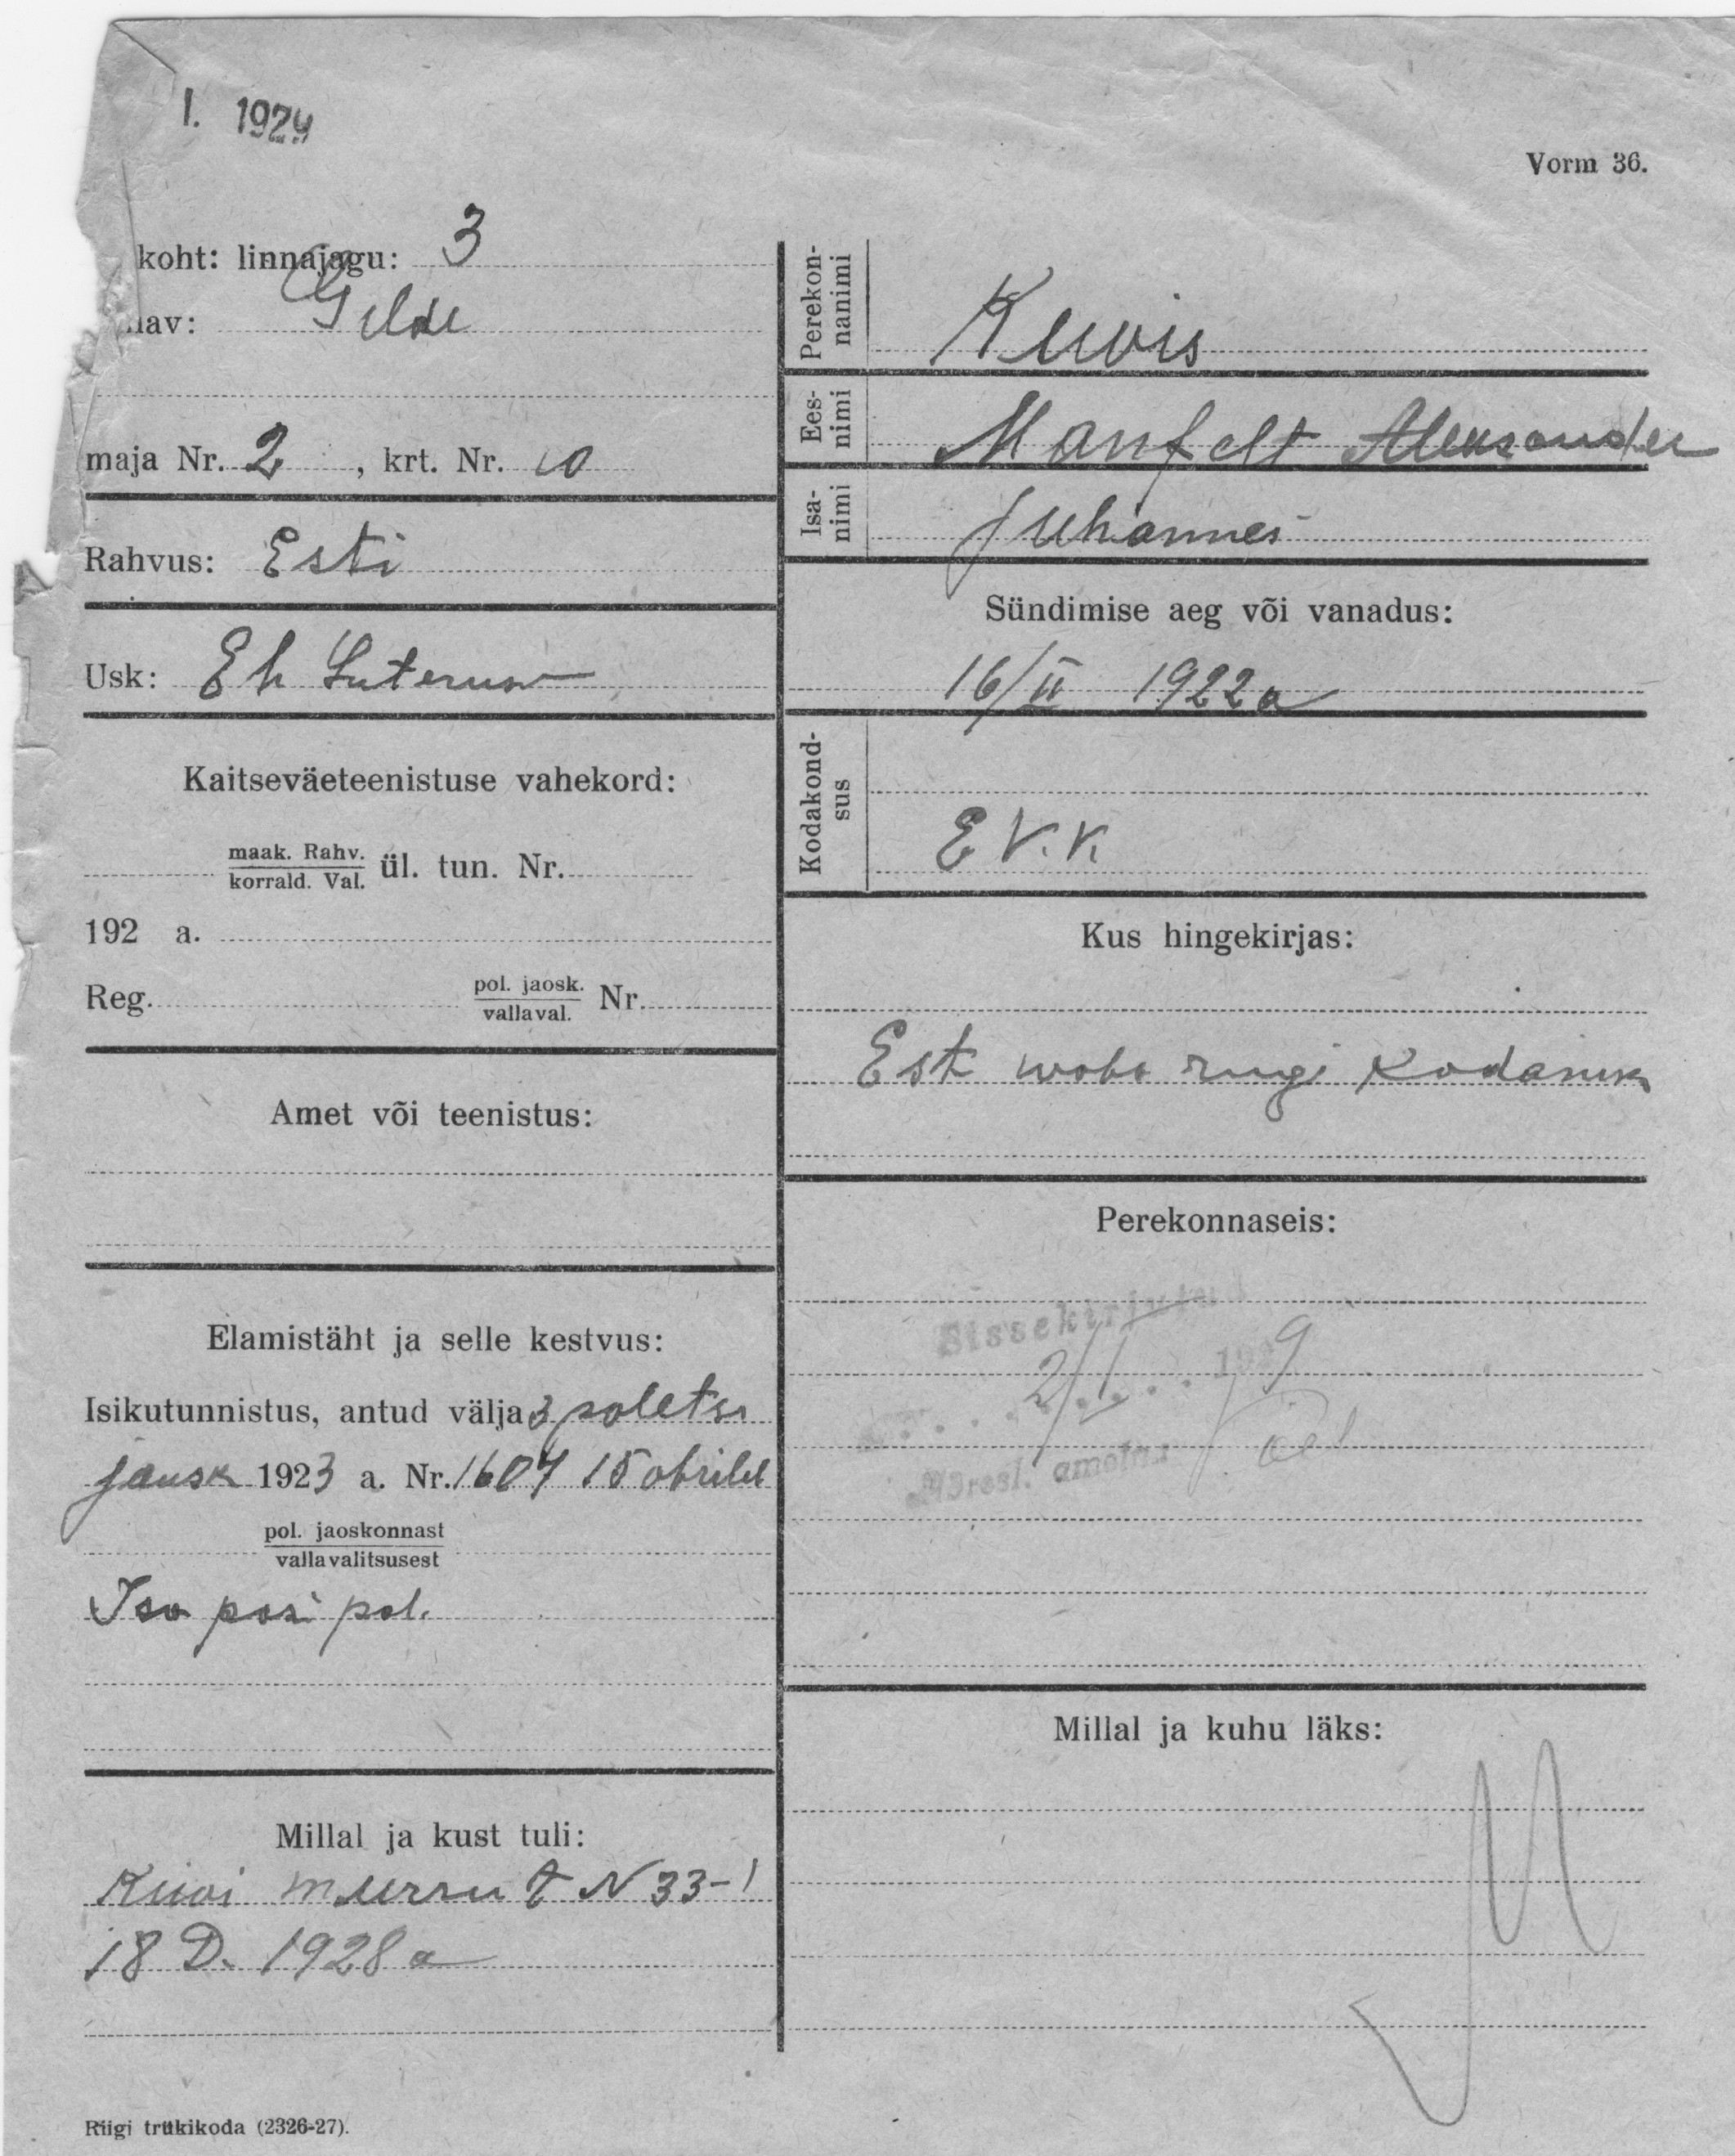 I. 1929
Vorm 36.
koht: linnajagu: 3
nav: Gilde
maja Nr. 2, krt. Nr. 10
Rahvus: Esti
Usk: Ev Luterusu
Kaitseväeteenistuse vahekord:
maak. Rahv.
korrald. Val.
ül. tun. Nr.
192 a.
Reg. pol. jaosk. Nr.
vallaval.
Amet või teenistus:
Elamistäht ja selle kestvus:
Isikutunnistus, antud välja 3 politsei
jausk 1923 a. Nr. 1607 15 abrilil
pol. jaoskonnast
vallavalitsusest
Isa pasi pol.
Millal ja kust tuli:
Kiwi murru t N 33-1
18 D. 1928 a
Riigi trükikoda (2326-27).
Perekonnanimi
Kuwis
Eesnimi
Manfelt Aleksander
Isanimi
Juhannes
Sündimise aeg või vanadus:
16/II 1922 a
Kodakondsus
E V. K.
Kus hingekirjas:
Est waba riigi Kodanik
Perekonnaseis:
Sissekirjutatud
2/I 1929
Adresl. ametnik
Millal ja kuhu läks: